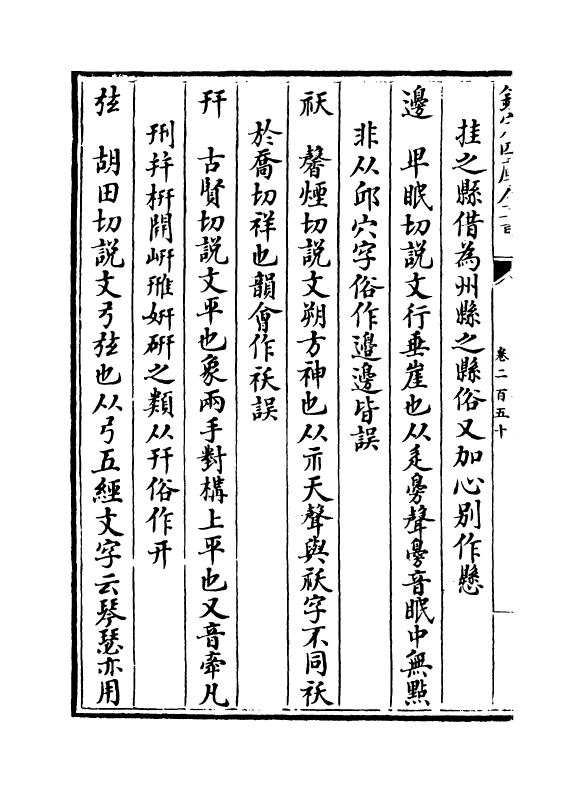 欽定四庫全書
卷二百五十
挂之縣借為州縣之縣俗又加心别作懸
邊　㽗眠切説文行垂崖也从辵臱聲臱音眠中無點
非从邱穴字俗作邉邊皆誤
祆　馨煙切説文朔方神也从示天聲與祅字不同祅
於喬切祥也韻會作祅誤
幵　古賢切説文平也象兩手對構上平也又音牽凡
刑并枅開岍雃妍研之類从幵俗作开
弦　胡田切説文弓弦也从弓五經文字云琴瑟亦用